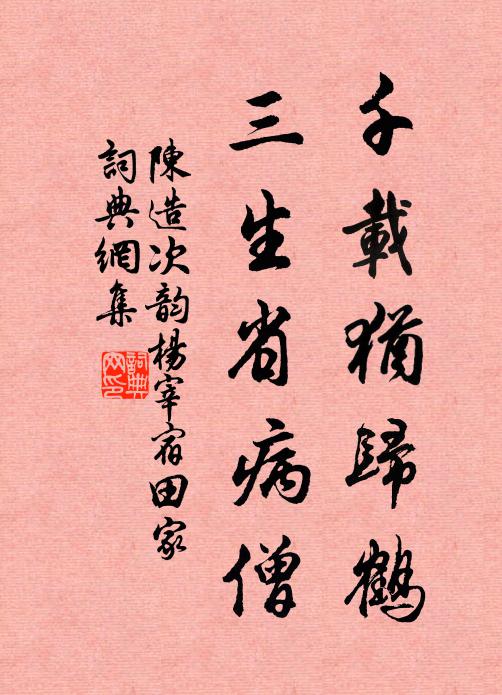 千載猶歸鶴
三生省病僧
陳造次韵楊宰宿田家
詞典網集
詞典
网印